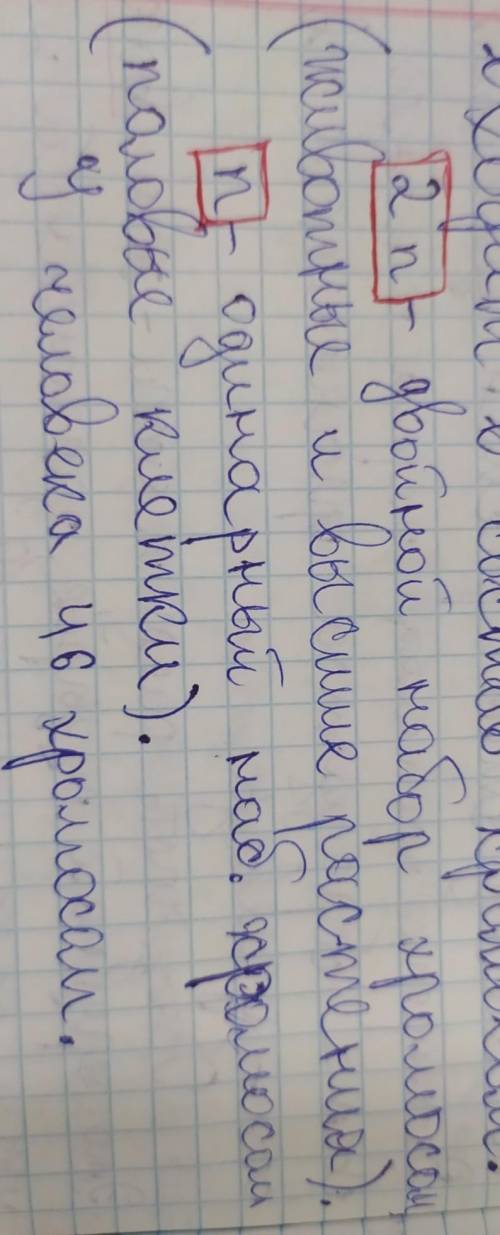 входит в состав хромосом.
2n - двойной набор хромосом
(животные и высшие растения).
n - одинарный наб. хромосом
(половые клетки).
У человека 46 хромосом.